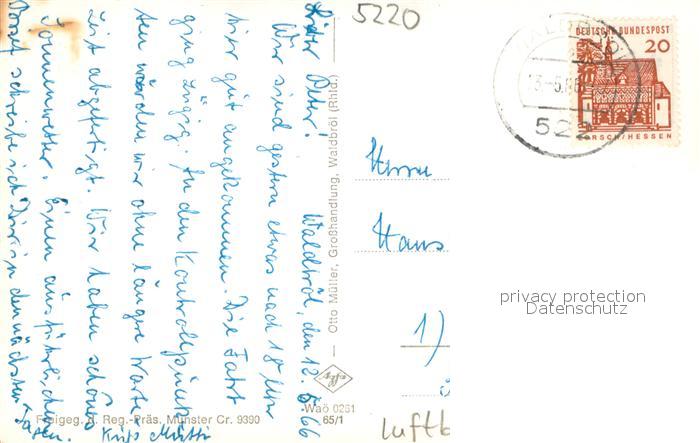 5220
WALDBRÖL
522
DEUTSCHE BUNDESPOST
20
LORSCH/HESSEN
Waldbröl, den 12. 5. 66
Lieber Vater!
Wir sind gestern etwas nach 18 Uhr
hier gut angekommen. Die Fahrt
ging zügig. In den Kontrollpunk
ten würden wir ohne längere Warte
zeit abgefertigt. Wir haben schönes
Sonnenwetter. Einen ausführlichen
Brief schreibe ich Dir in den nächsten
Tagen.
Mutti
Otto Müller, Großhandlung, Waldbröl (Rhld.)
Agfa
Waö 0261
65/1
Freigeg. d. Reg.-Präs. Münster Cr. 9390
Herrn
Hans
1)
luftb
privacy protection
Datenschutz